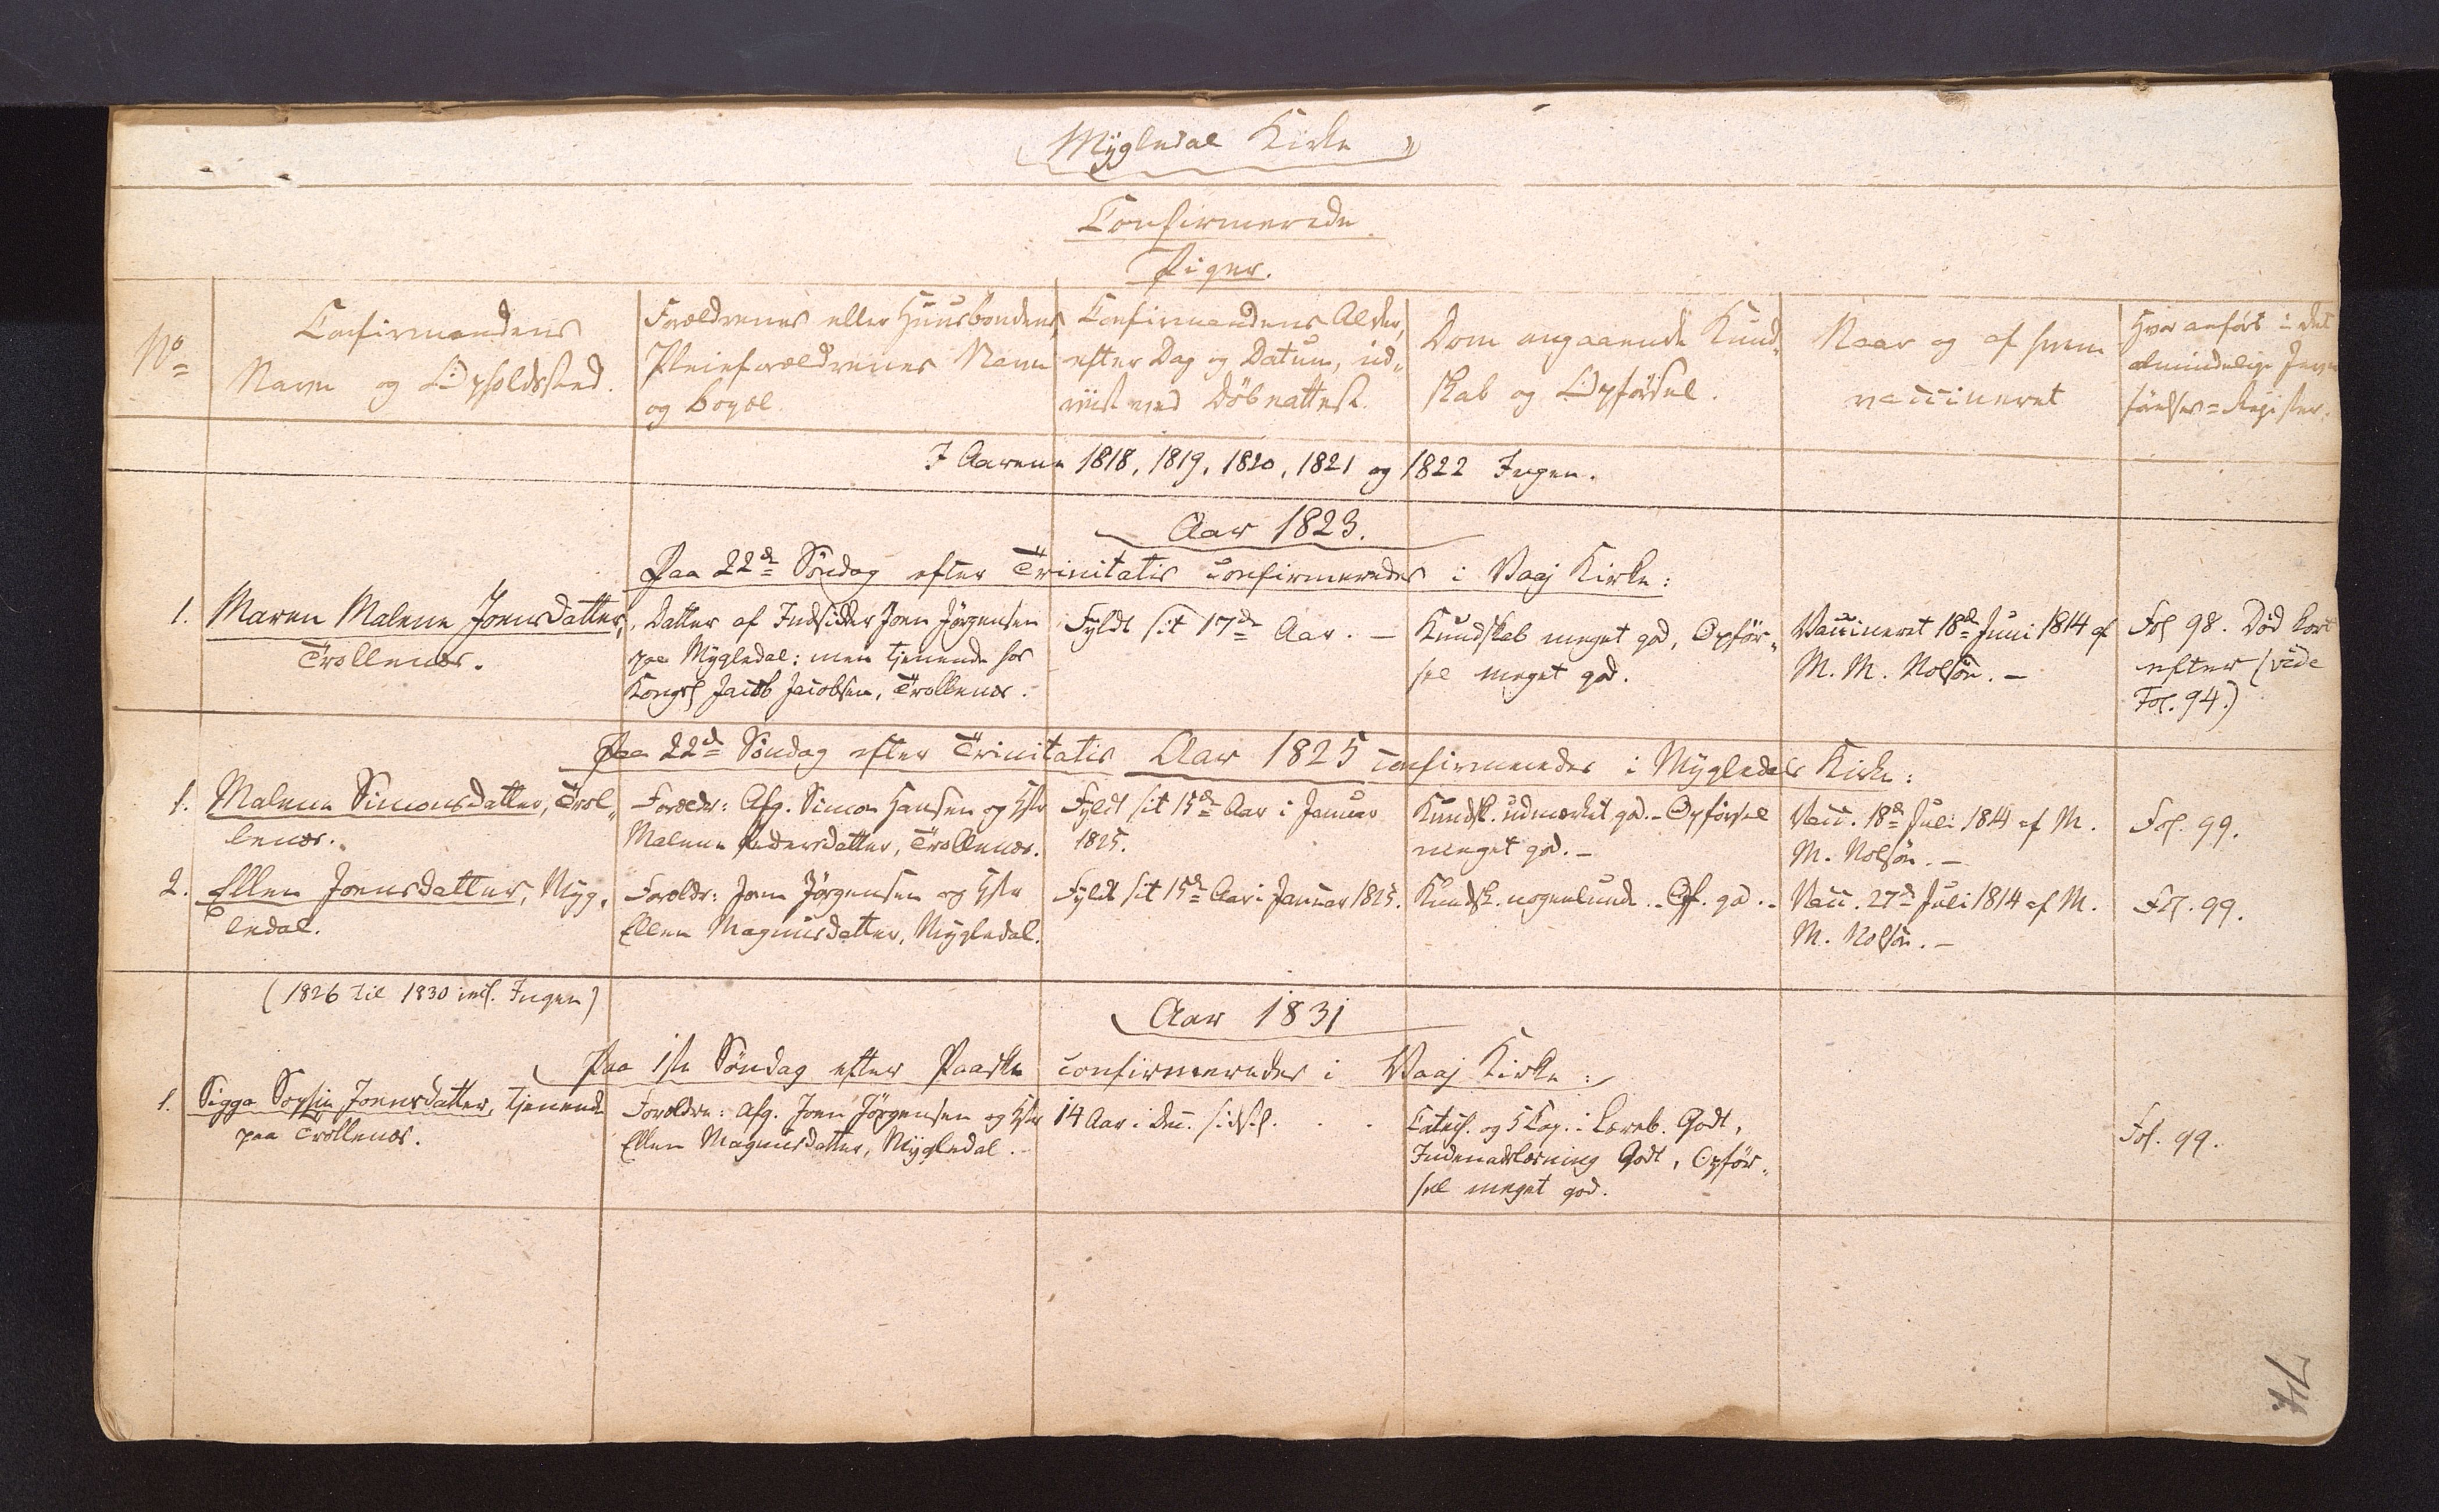 Mÿgledal Kirke
Confirmerede
Piger.
No
Confirmandens
Navn og Opholdssted.
Forældrenes eller Huusbondens,
Pleieforældrenes Navn
og Bopæl
Confirmandens Alder,
efter Dag og Datum, ud-
viist ved Döbeattest.
Dom angaaende Kund-
skab og Opförsel.
Naar og af hvem
vaccineret
Hvor anfört i det
almindelige Jevn
förelses=Register.
I Aarene 1818, 1819, 1820, 1821 og 1822 Ingen.
Aar 1823.
Paa 22de Söndag efter Trinitatis confirmeredes i Vaaj Kirke:
1. Maren Malene Joensdatter,
Trollenæs.
Datter af Indsidder Joen Jörgensen
paa Mÿgledal; men tjenende hos
Kongsb Jacob Jacobsen, Trollenæs.
Fyldt sit 17de Aar. —
Kundskab meget god, Opför-
sel meget god.
Vaccineret 18de Juni 1814 af
M. M. Nolsön. —
Fol 98. Död kort
efter (vide
Fol. 94)
Paa 22de Söndag efter Trinitatis Aar 1825 confirmeredes i Mÿgledals Kirke:
1. Malene Simonsdatter, Trol-
lenæs.
Forældr: Afg. Simon Hansen og Hstr
Malene Pedersdatter, Trollenæs.
Fyldt sit 15de Aar i Januar
1825.
Kundsk. udmærket god. - Opförsel
meget god. -
Vacc. 18de Juli 1814 af M.
M. Nolsön. —
Fol. 99.
2. Ellen Joensdatter, Myg-
ledal.
Forældr: Joen Jörgensen og Hstr
Ellen Magnusdatter, Mÿgledal.
Fyldt sit 15de Aar i Januar 1825.
Kundsk. nogenlunde. - Opf. god. -
Vacc. 27de Juli 1814 af M.
M. Nolsön. —
Fol. 99.
(1826 til 1830 incl. Ingen)
Aar 1831
Paa 1ste Söndag efter Paaske confirmeredes i Vaaj Kirke:
1. Sigga Sophie Joensdatter, tjenende
paa Trollenæs.
Forældre: Afg. Joen Jörgensen og Hstr
Ellen Magnusdatter, Mÿgledal. -
14 Aar i Dec. sidstl. . .
Catech. og 5 Cap. i Læreb. Godt,
Indenadslæsning Godt, Opför-
sel meget god.
Fol. 99.
74.